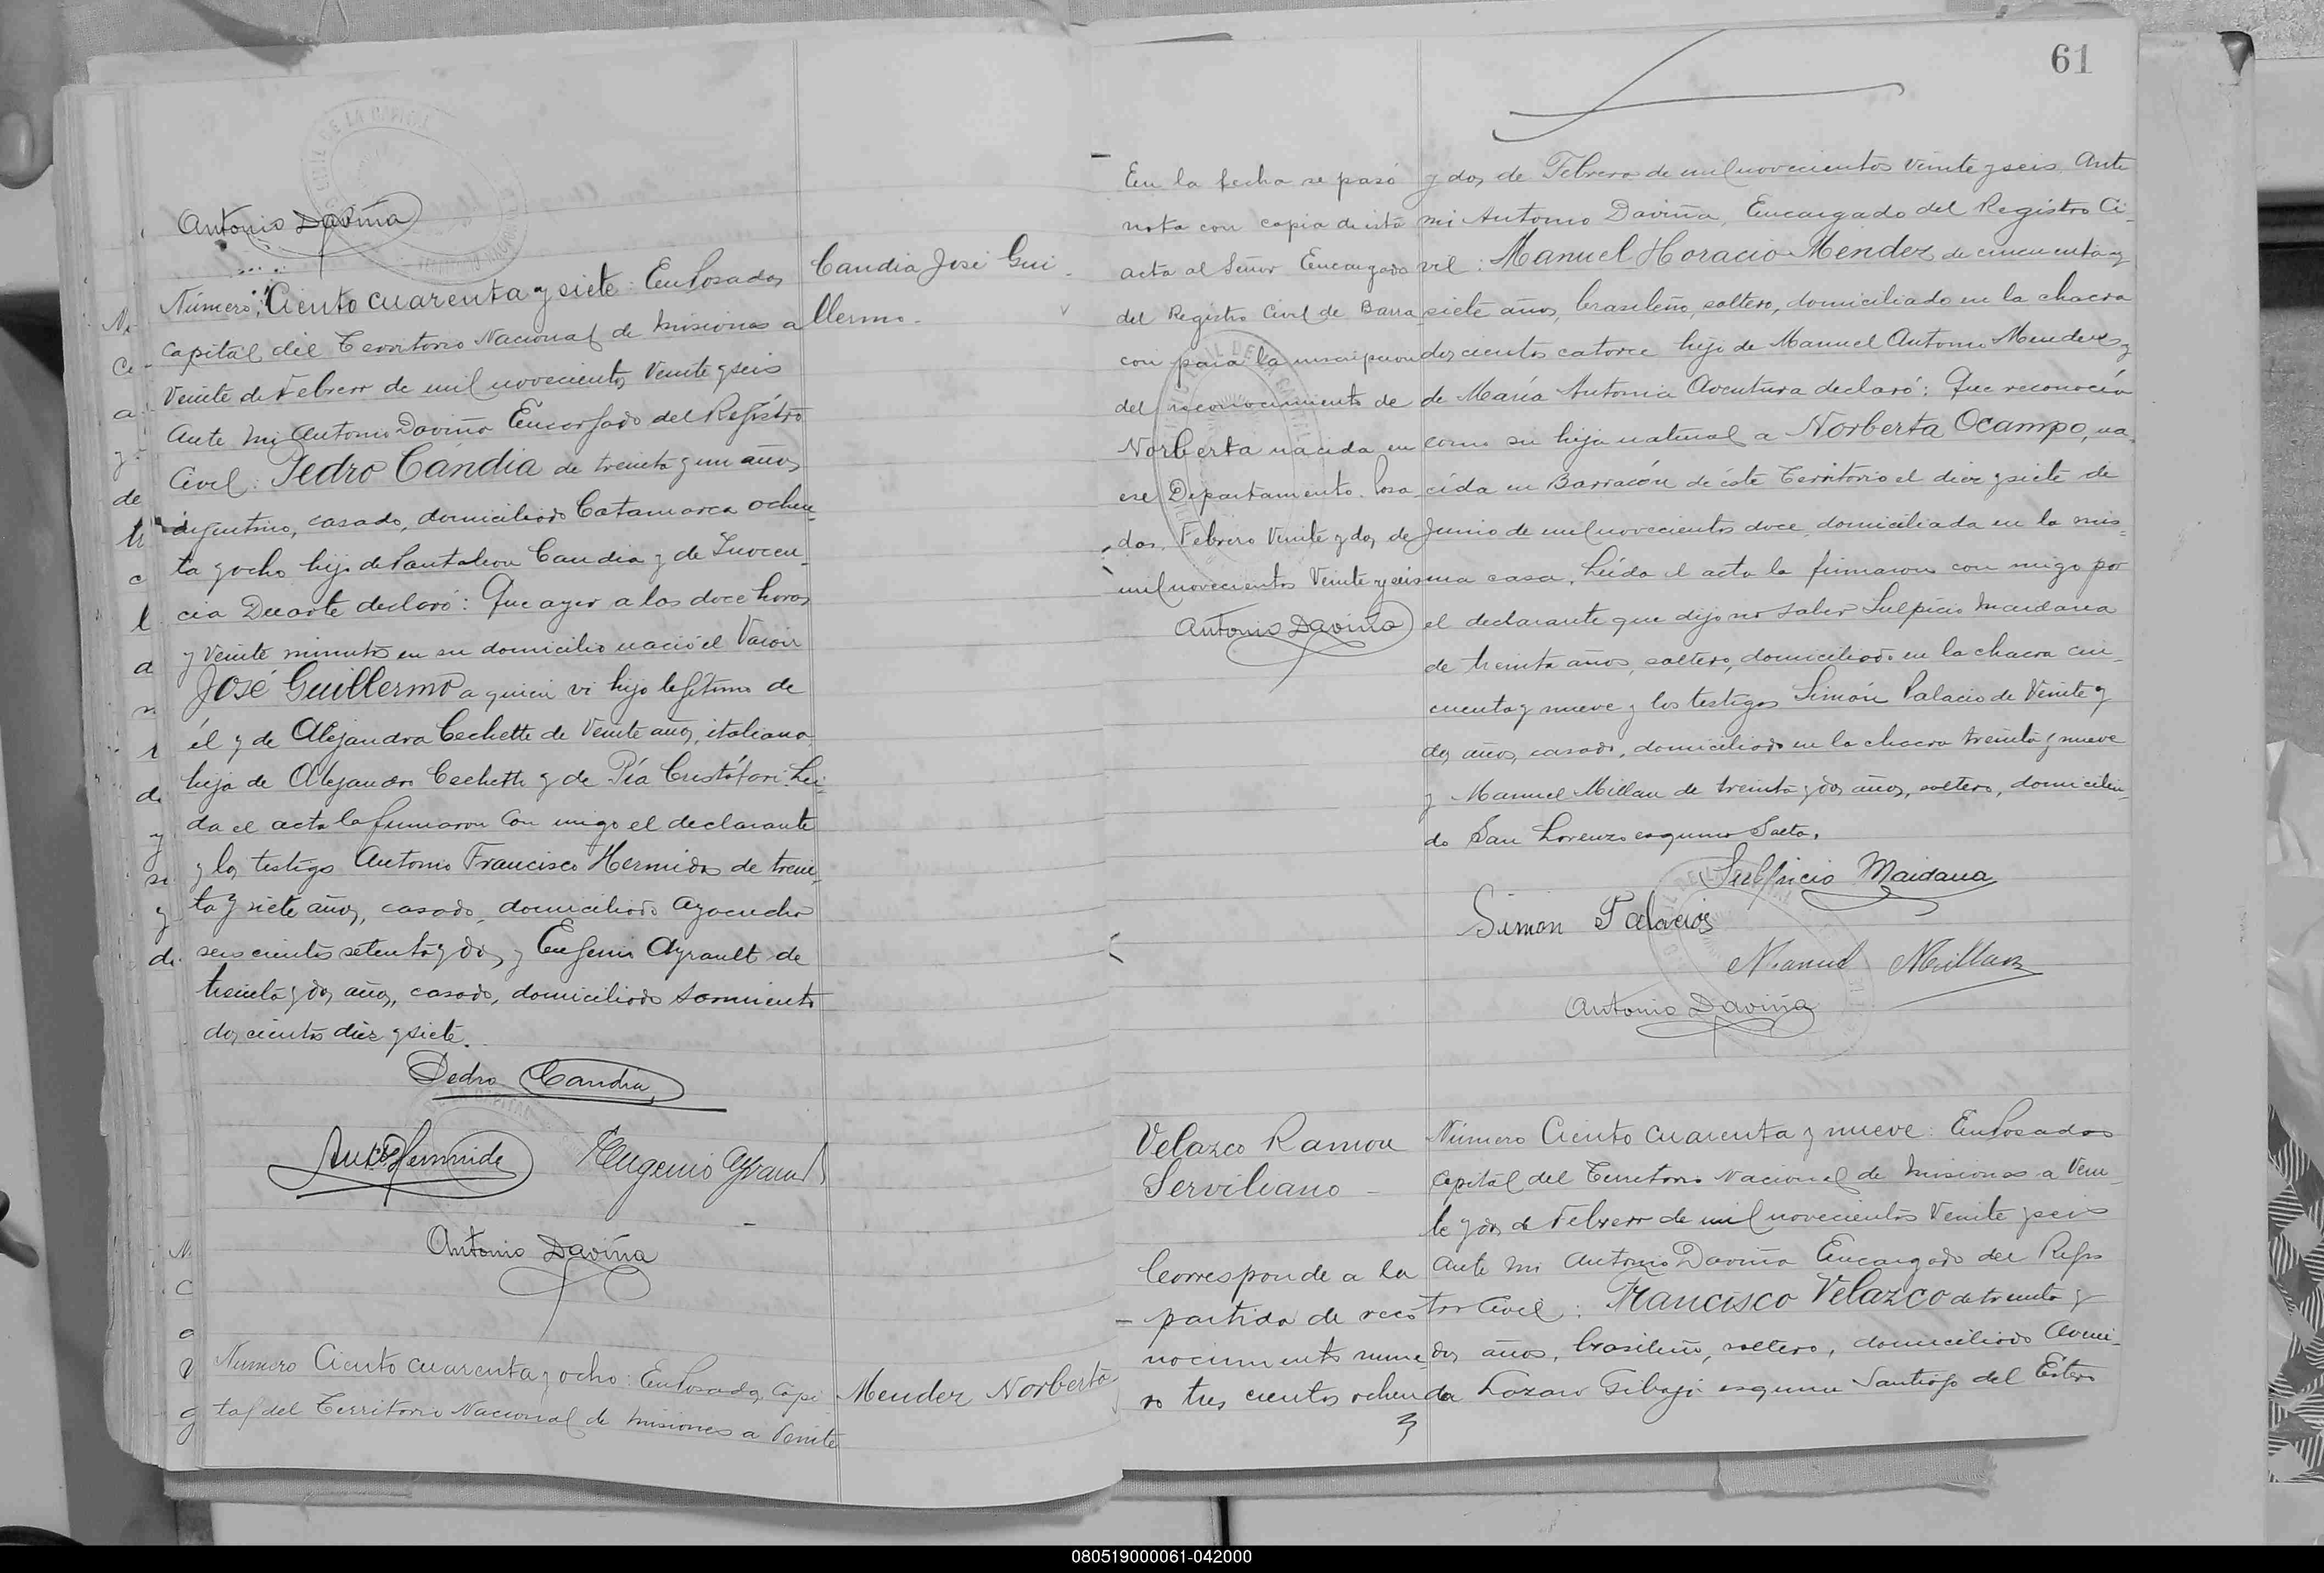 Antonio Daviña
Número: Ciento cuarenta y siete: En Posadas
Capital del Territorio Nacional de Misiones a
Veinte de Febrero de mil novecientos Veinte y seis
Ante mi Antonio Daviña Encargado del Registro
Civil: Pedro Candia de treinta y un años
argentino, casado, domiciliado Catamarca ochen-
ta y ocho hijo de Pantaleon Candia y de Inocen-
cia Duarte declaró: Que ayer a las doce horas
y Veinte minutos en su domicilio nació el Varon
José Guillermo a quien vi hijo legítimo de
él y de Alejandra Cechette de Veinte años, italiana,
hija de Alejandro Cechette y de Pía Cristófori. Lei-
da el acta la firmaron con migo el declarante
y los testigos Antonio Francisco Hermida de trein-
ta y siete años, casado, domiciliado Ayacucho
seiscientos setenta y dos, y Eugenio Ayrault de
treinta y dos años, casado, domiciliado Sarmiento
doscientos diez y siete.
Candia José Gui-
llermo.
Pedro Candia
Eugenio Ayrault
Antonio Daviña
Numero Ciento cuarenta y ocho: En Posadas, Capi
tal del Territorio Nacional de Misiones a Veinte
Mendez Norberta
61
y dos de Febrero de mil novecientos Veinte y seis. Ante
mi Antonio Daviña, Encargado del Registro Ci-
vil: Manuel Horacio Mendez de cincuenta y
siete años, brasileño, soltero, domiciliado en la chacra
doscientos catorce hijo de Manuel Antonio Mendez y
de María Antonia Aventura declaró: Que reconocía
como su hija natural a Norberta Ocampo, na-
cida en Barracón de éste Territorio el diez y siete de
Junio de mil novecientos doce, domiciliada en la mis-
ma casa. Leída el acta la firmaron con migo por
el declarante que dijo no saber Sulpicio Maidana
de treinta años, soltero, domiciliado en la chacra cin-
cuenta y nueve y los testigos Simón Palacio de Veinte y
dos años, casado, domiciliado en la chacra treinta y nueve
y Manuel Millan de treinta y dos años, soltero, domicilia-
do San Lorenzo esquina Salta.
En la fecha se pasó
nota con copia de esta
acta al Señor Encargado
del Registro Civil de Barra
con para la inscripcion
del reconocimiento de
Norberta nacida en
ese Departamento. Posa
das, Febrero Veinte y dos de
mil novecientos Veinte y seis
Antonio Daviña
Sulpicio Maidana
Simon Palacios
Manuel Millan
Antonio Daviña
Velazco Ramon
Serviliano
Corresponde a la
partida de reco
nocimiento nume
ro tres cientos ochen
Número Ciento cuarenta y nueve: En Posadas
Capital del Territorio Nacional de Misiones a Vein-
te y dos de Febrero de mil novecientos Veinte y seis
Ante mi Antonio Daviña Encargado del Regis
tro Civil: Francisco Velazco de treinta y
dos años, brasileño, soltero, domiciliado Aveni-
da Lazaro Gibaja esquina Santiago del Estero
080519000061-042000